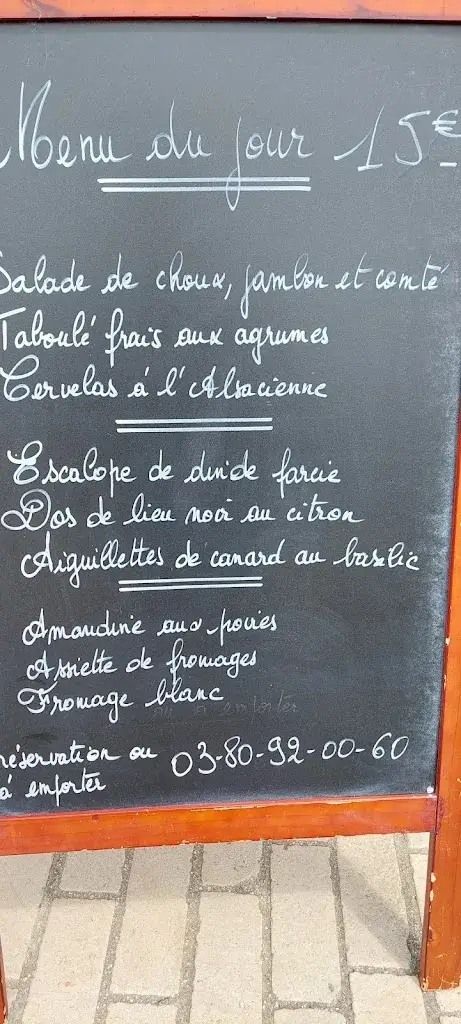 Menu du jour 15€
Salade de choux, jambon et comté
Taboulé frais aux agrumes
Cervelas à l'Alsacienne
Escalope de dinde farcie
Dos de lieu noir au citron
Aiguillettes de canard au basilic
Amandine aux poires
Assiette de fromages
Fromage blanc
à emporter
réservation ou 03-80-92-00-60
à emporter